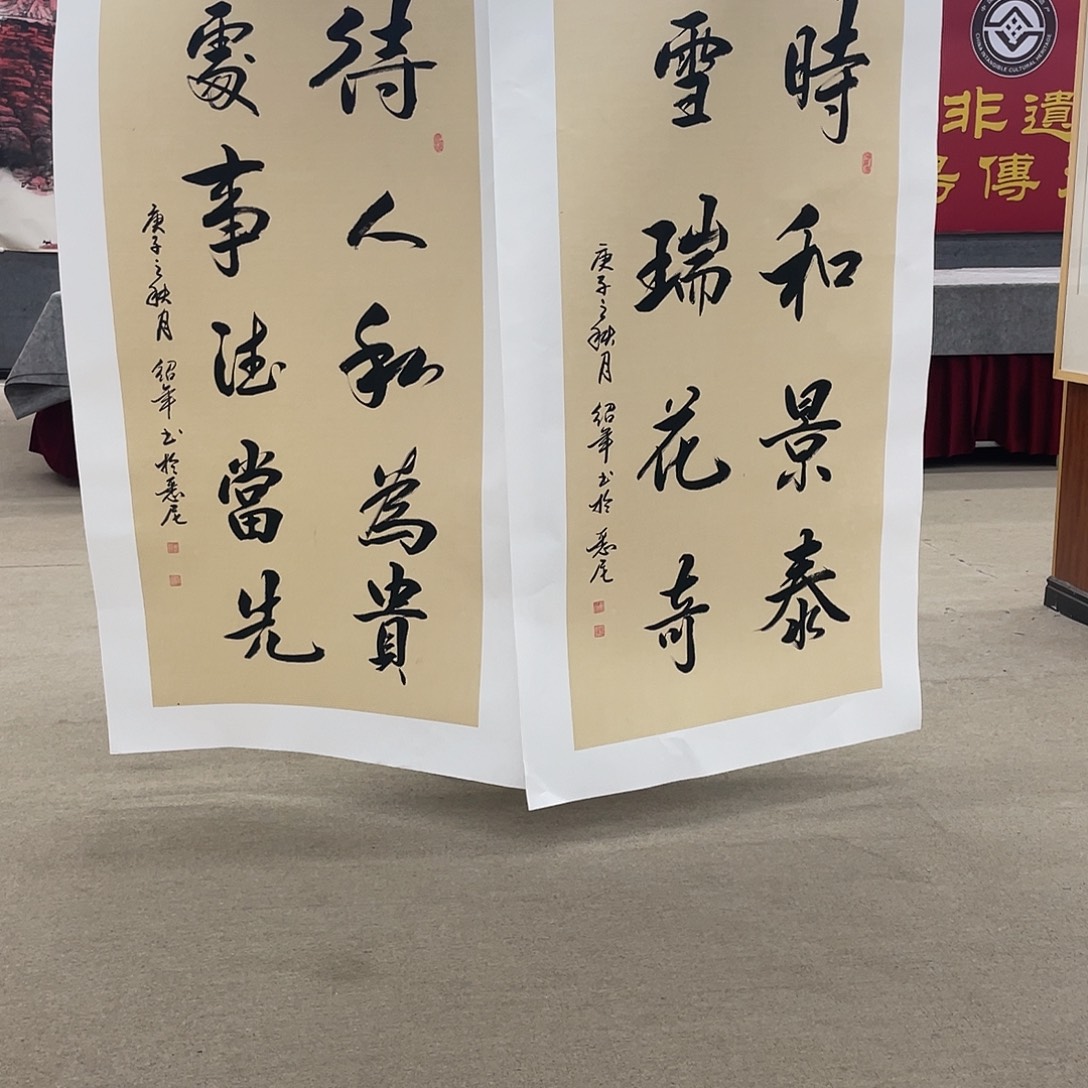 時和景泰
雪瑞花奇
庚子之秋月 紹年书於悉尼
待人和為貴
處事德當先
庚子之秋月 紹年书於悉尼
CHINA INTANGIBLE CULTURAL HERITAGE
非遺
傳